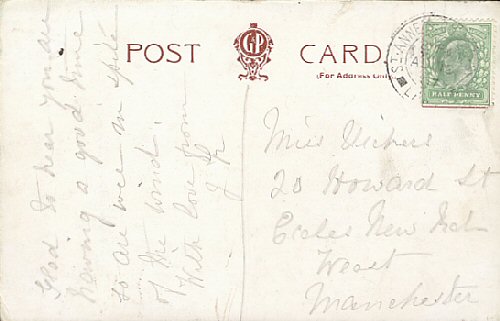 POST CARD.
(For Address Only)
Glad to hear you are
having a good time
so are we in spite
of the wind.
With love from
Miss Vickers
20 Howard St
Eccles New Rd
Weast
Manchester
ST. ANNE
HALF PENNY
GP